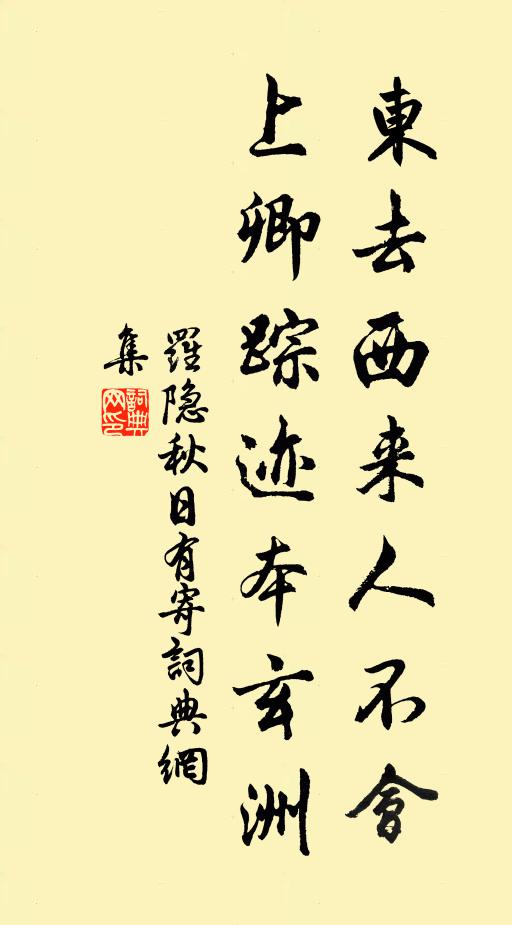 東去西来人不會
上卿踪迹本玄洲
羅隐秋日有寄詞典網
集
詞典網印